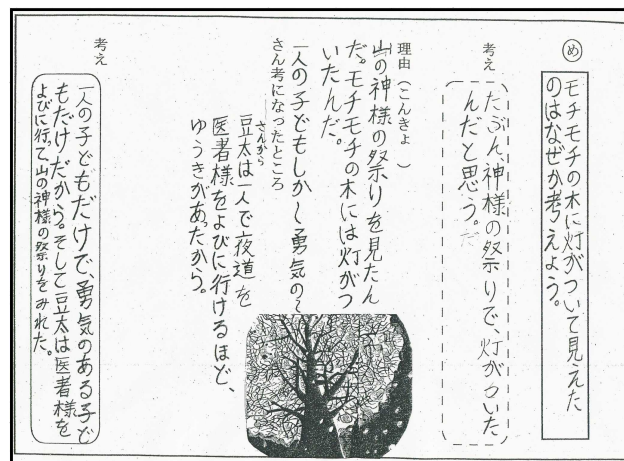 め
モチモチの木に灯がついて見えた
のはなぜか考えよう。
考え
たぶん、神様の祭りで、灯がついた
んだと思う。だ
理由(こんきょ)
山の神様の祭りを見たん
だ。モチモチの木には灯がつ
いたんだ。
一人の子どもしか〜勇気の〜
さん考になったところ
さんから
豆太は一人で夜道を
医者様をよびに行けるほど、
ゆうきがあったから。
考え
一人の子どもだけで、勇気のある子ど
もだけだから。そして豆太は医者様を
よびに行って山の神様の祭りをみれた。